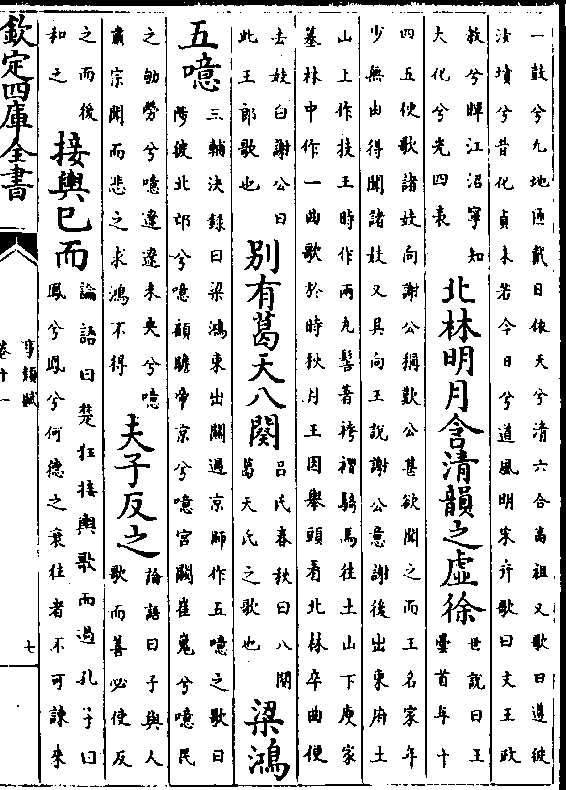 一鼓兮九地匝戴日依天兮清六合高祖又歌曰遵彼
汝墳兮昔化貞未若今日兮道風明宋弁歌曰文王政
教兮暉江沼寧知
大化兮光四表
北林明月含清韻之虛徐
世說曰王
曇首年十
四五便歌諸妓向謝公稱歎公甚欲聞之而王名家年
少無由得聞諸妓又具向王說謝公意謝後出東府土
山上作技王時作兩丸髻著袴褶騎馬往土山下庾家
墓林中作一曲歌於時秋月王因舉頭看北林卒曲便
去妓白謝公曰
此王郎歌也
別有葛天八闋
呂氏春秋曰八闋
葛天氏之歌也
梁鴻
五噫
三輔決録曰梁鴻東出關過京師作五噫之歌曰
陟彼北邙兮噫顧瞻帝京兮噫宮闕崔嵬兮噫民
之劬勞兮噫遼遼未央兮噫
肅宗聞而悲之求鴻不得
夫子反之
論語曰子與人
歌而善必使反
之而後
和之
接輿已而
論語曰楚狂接輿歌而過孔子曰
鳳兮鳳兮何德之衰往者不可諫來
欽定四庫全書
事類賦
卷十一
七